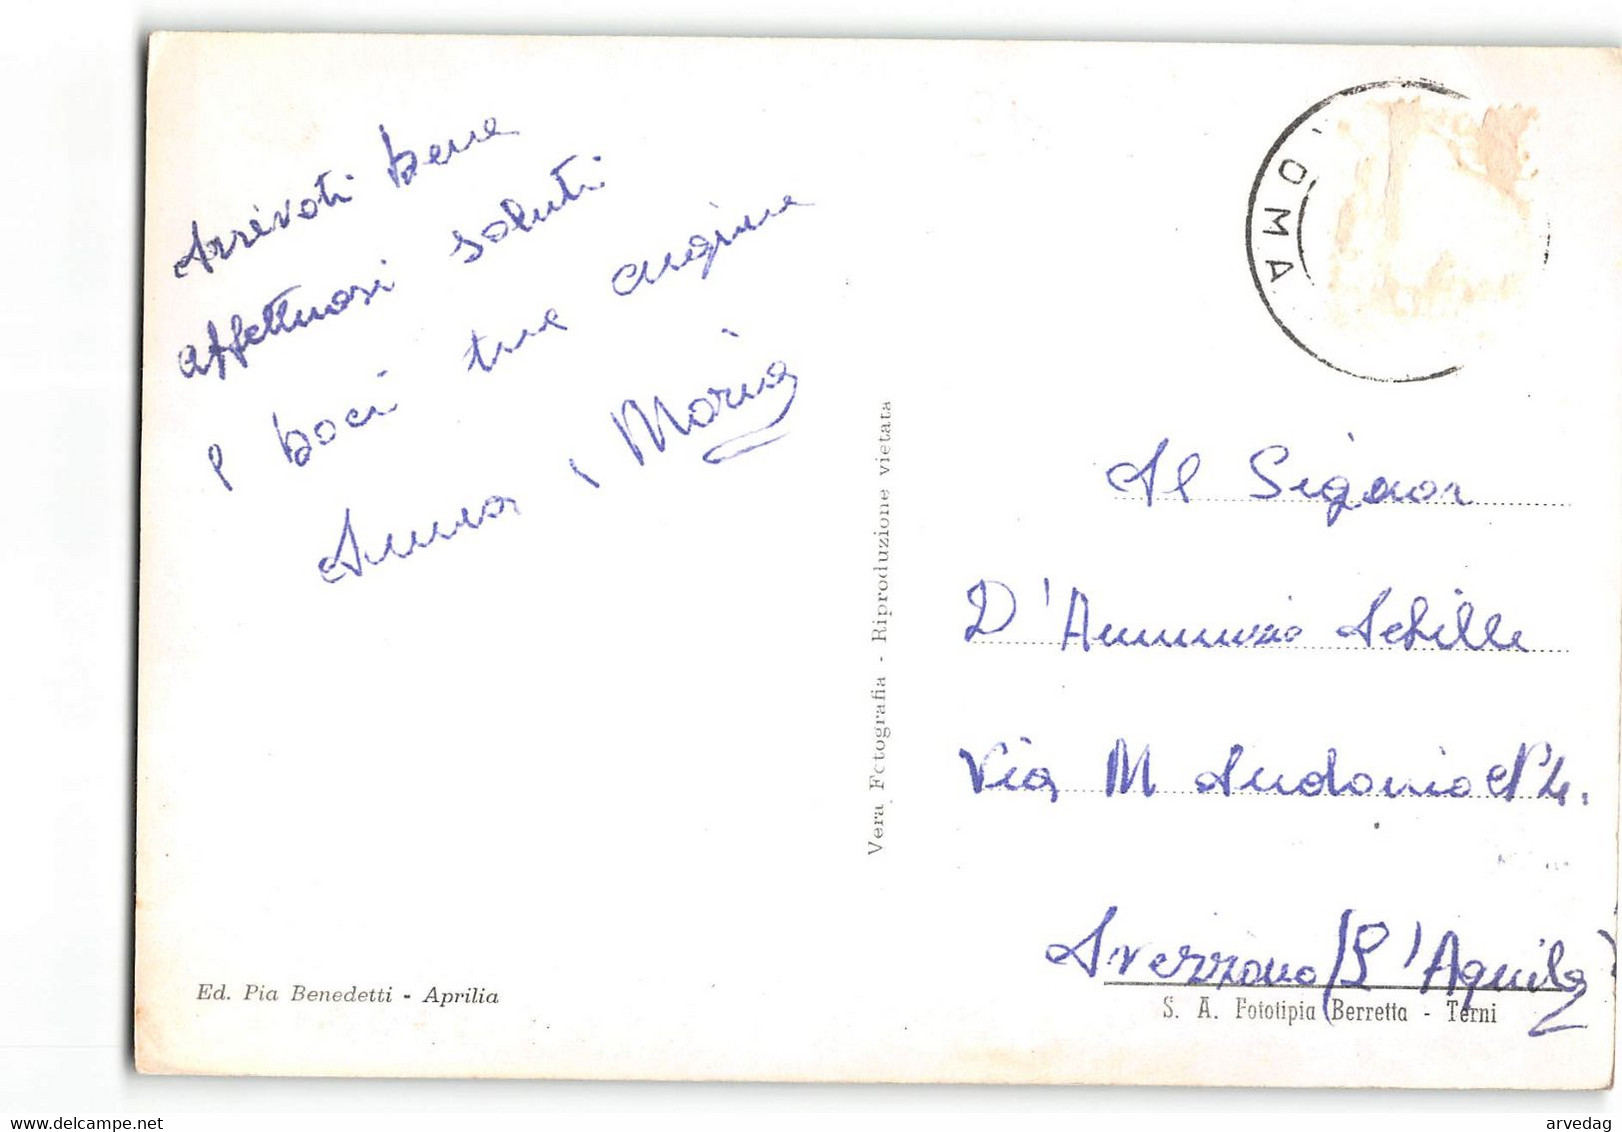 Arrivati bene
affettuosi saluti
e baci tue cugine
Anna e Maria
OMA
Vera Fotografia - Riproduzione vietata
Al Signor
D'Annunzio Achille
Via M Andonio N 4.
Avezzano (L'Aquila)
Ed. Pia Benedetti - Aprilia
S. A. Fototipia Berretta - Terni
www.delcampe.net
arvedag